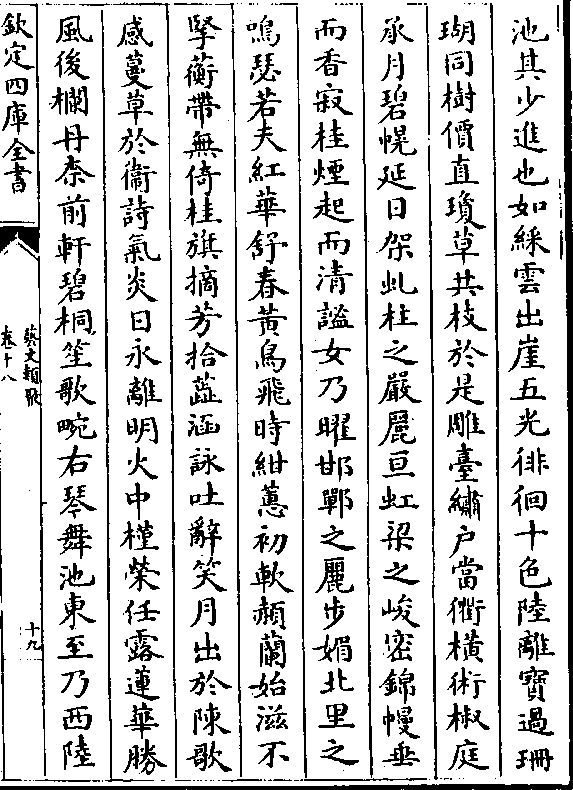 池其少進也如綵雲出崖五光徘徊十色陸離寶過珊
瑚同樹價直瓊草共枝於是雕臺繡户當衢橫術椒庭
承月碧幌延日架虬柱之嚴麗亘虹梁之峻密錦幔垂
而香寂桂煙起而清謐女乃曜邯鄲之麗步媚北里之
鳴瑟若夫紅華舒春黄鳥飛時紺蕙初軟頳蘭始滋不
掔蘅帶無倚桂旗摘芳拾蕋涵詠吐辭笑月出於陳歌
感蔓草於衞詩氣炎日永離明火中槿榮任露蓮華勝
風後欄丹柰前軒碧桐笙歌畹右琴舞池東至乃西陸
欽定四庫全書
藝文類聚
卷十八
十九